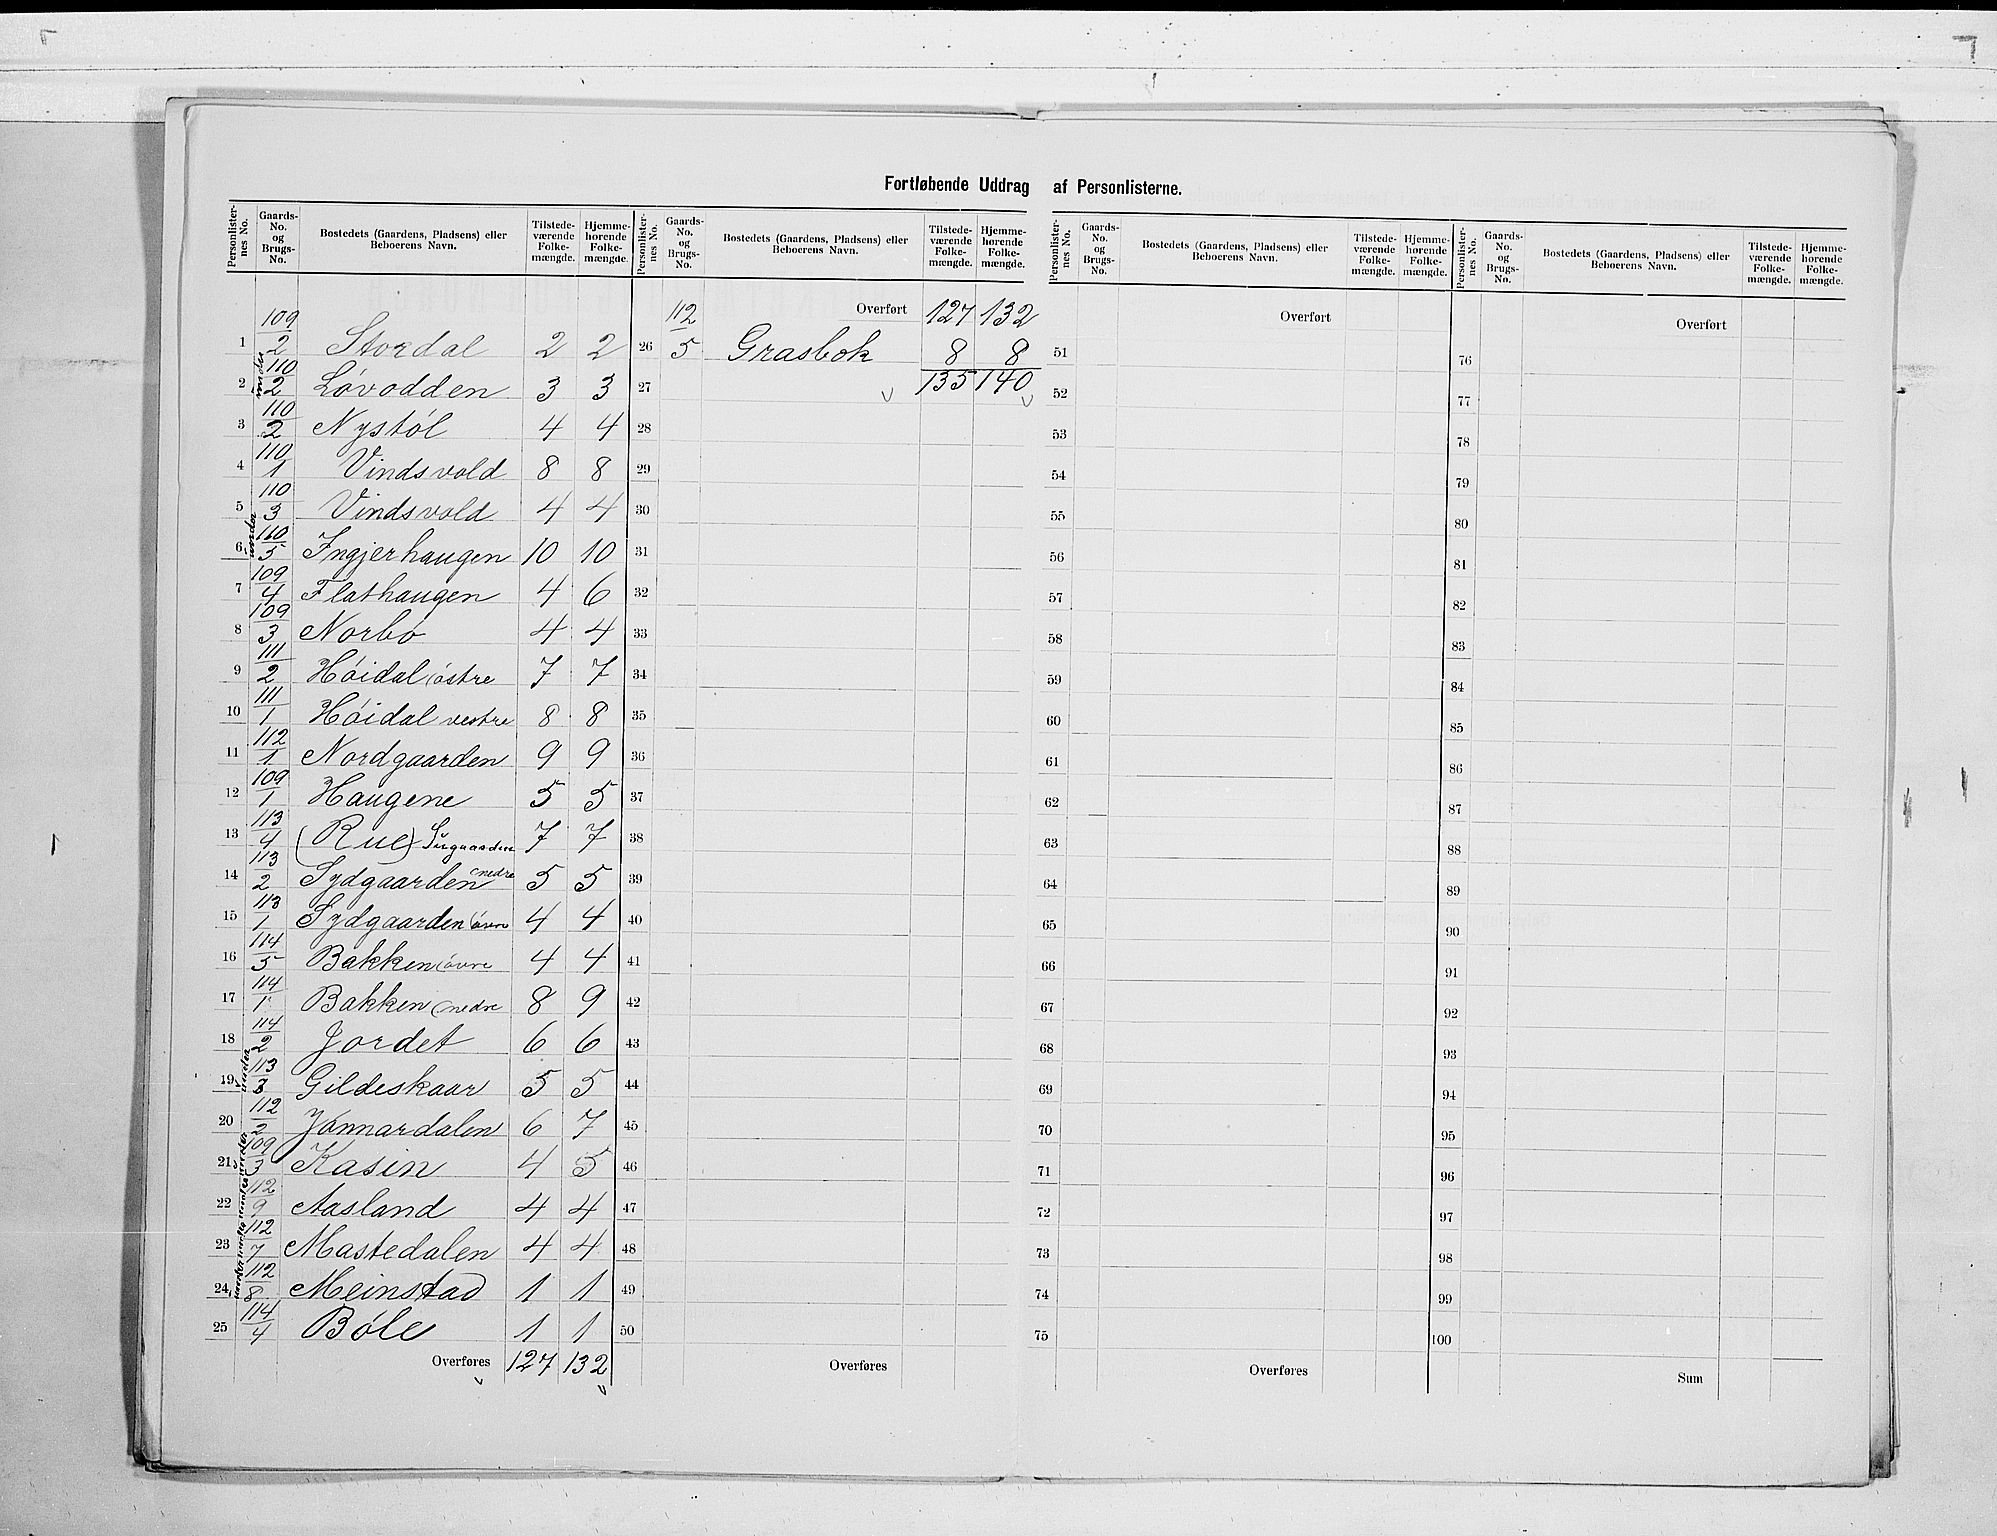 Fortløbende Uddrag af Personlisterne.
Personlister-nes No. Gaards-No. og Brugs-No. Bostedets (Gaardens, Pladsens) eller Beboerens Navn. Tilstede-værende Folke-mængde. Hjemme-hørende Folke-mængde.
1 109/2 Stordal 2 2
2 under 110/2 Løvodden 3 3
3 110/2 Nystøl 4 4
4 110/1 Vindsvold 8 8
5 110/3 Vindsvold 4 4
6 under 110/5 Ingjerhaugen 10 10
7 109/4 Flathaugen 4 6
8 109/3 Norbø 4 4
9 111/2 Høidal (østre 7 7
10 111/1 Høidal vestre 8 8
11 112/1 Nordgaarden 9 9
12 109/1 Haugene 5 5
13 113/4 (Rue) 7 7
14 113/2 Sydgaarden nedre 5 5
15 113/1 Sydgaarden (øvre 4 4
16 114/5 Bakken (øvre 4 4
17 114/1 Bakken (nedre 8 9
18 114/2 Jordet 6 6
19 under 113/3 Gildeskaar 5 5
20 112/2 Jønnardalen 6 7
21 under 109/3 Kasin 4 5
22 under 112/9 Aasland 4 4
23 112/7 Mastedalen 4 4
24 under 112/8 Meinstad 1 1
25 114/4 Bøle 1 1
Overføres 127 132
Personlister-nes No. Gaards-No. og Brugs-No. Bostedets (Gaardens, Pladsens) eller Beboerens Navn. Tilstede-værende Folke-mængde. Hjemme-hørende Folke-mængde.
Overført 127 132
26 112/5 Grasbok 8 8
27 135 140
28
29
30
31
32
33
34
35
36
37
38
39
40
41
42
43
44
45
46
47
48
49
50
Overføres
Personlister-nes No. Gaards-No. og Brugs-No. Bostedets (Gaardens, Pladsens) eller Beboerens Navn. Tilstede-værende Folke-mængde. Hjemme-hørende Folke-mængde.
Overført
51
52
53
54
55
56
57
58
59
60
61
62
63
64
65
66
67
68
69
70
71
72
73
74
75
Overføres
Personlister-nes No. Gaards-No. og Brugs-No. Bostedets (Gaardens, Pladsens) eller Beboerens Navn. Tilstede-værende Folke-mængde. Hjemme-hørende Folke-mængde.
Overført
76
77
78
79
80
81
82
83
84
85
86
87
88
89
90
91
92
93
94
95
96
97
98
99
100
Sum